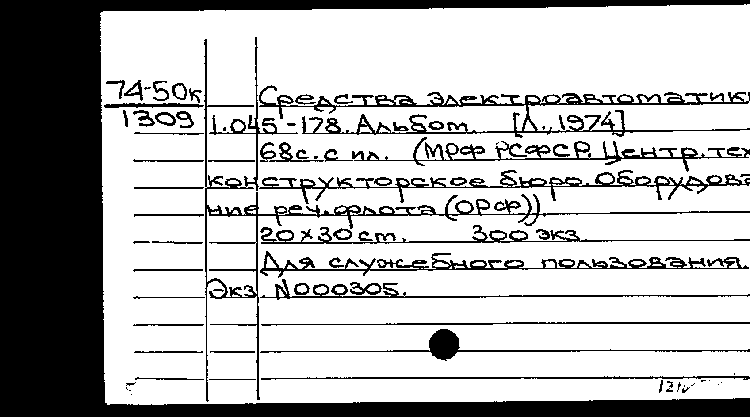 74-50к
1309
Средства электроавтоматики
1.045-178. Альбом. [Л., 1974]
68с. с ил. (МРФ РСФСР. Центр. тех
конструкторское бюро. Оборудова
ние реч. флота (ОРФ)).
20×30 см. 300 экз.
Для служебного пользования.
Экз. N000305.